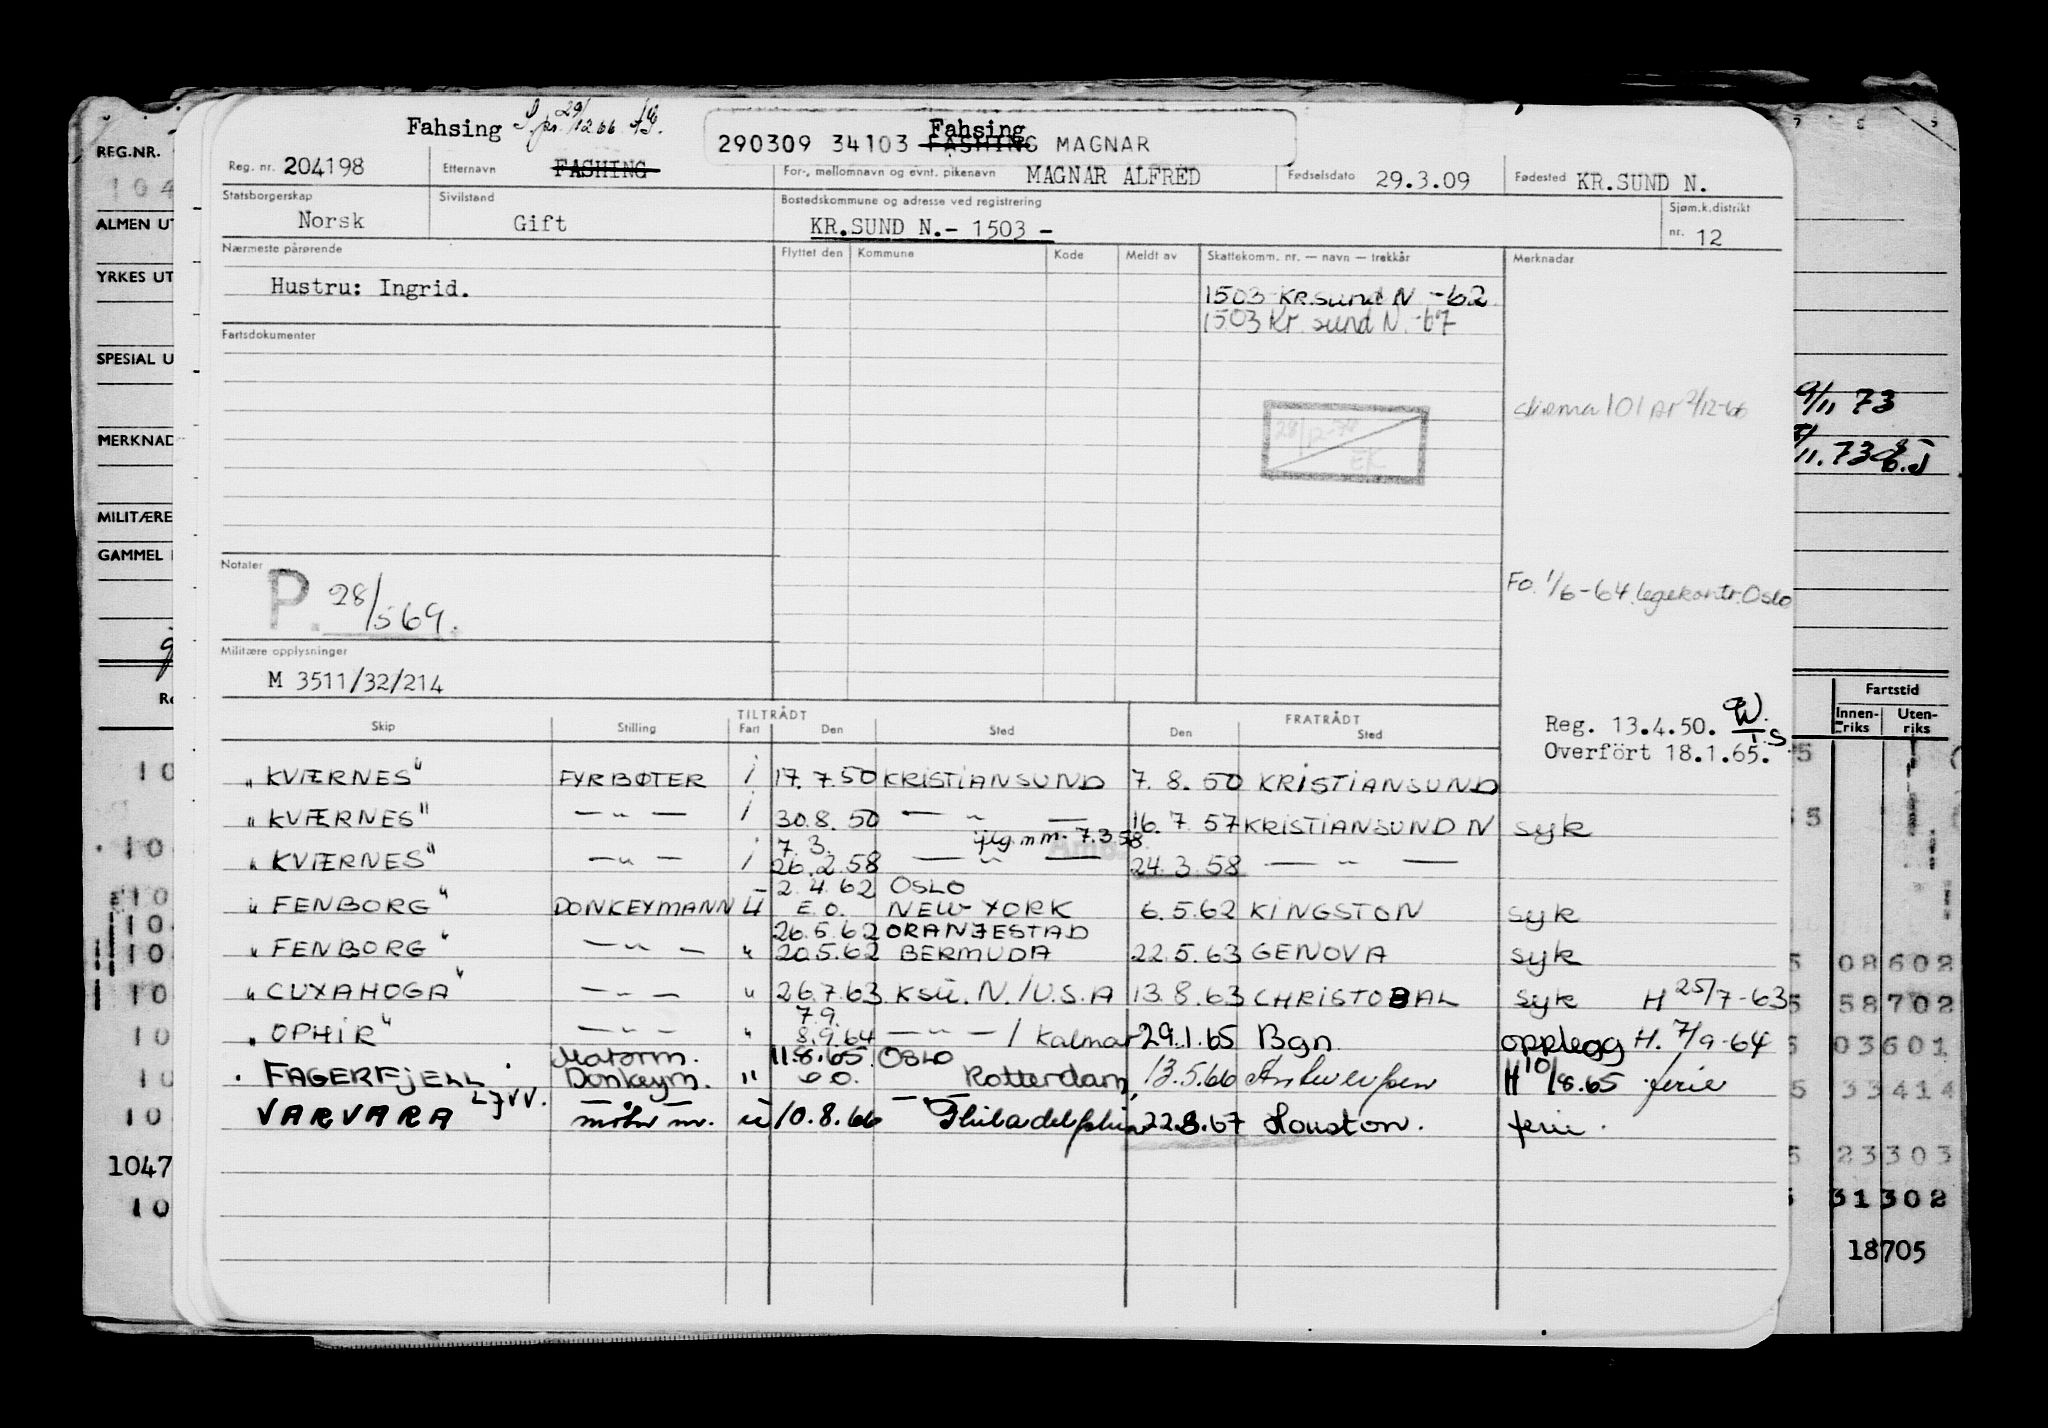 Fahsing
Fahsing
290309 34103 FASHING MAGNAR
Reg. nr. 204198 Etternavn FASHING For-, mellomnavn og evnt. pikenavn MAGNAR ALFRED Fødselsdato 29.3.09 Fødested KR.SUND N.
Statsborgerskap Norsk Sivilstand Gift Bostedskommune og adresse ved registrering KR.SUND N.- 1503 - Sjøm.k.distrikt nr. 12
Nærmeste pårørende Flyttet den Kommune Kode Meldt av Skattekomm. nr. — navn — trekkår Merknader
Hustru: Ingrid.
1503 KR.sund N -62
1503 Kr. sund N. -67
Fartsdokumenter
skjema 101 AR 2/12-66
28/12-70
EK
Fo. 1/6-64. legekontr. Oslo
Notater
P. 28/5 69.
Militære opplysninger
M 3511/32/214
Reg. 13.4.50.
Overført 18.1.65.
TILTRÅDT FRATRÅDT
Skip Stilling Fart Den Sted Den Sted
"KVÆRNES" FYRBØTER i 17.7.50 KRISTIANSUND 7.8.50 KRISTIANSUND
"KVÆRNES" — " — i 30.8.50 — " — 16.7.57 KRISTIANSUND N syk
7.3. 7.3.58
"KVÆRNES" — " — i 26.2.58 — " — 24.3.58 — " —
2.4.62 OSLO
"FENBORG" DONKEYMANN U E.O. NEW YORK 6.5.62 KINGSTON syk
26.5.62 ORANJESTAD
"FENBORG" — " — " 20.5.62 BERMUDA 22.5.63 GENOVA syk
"CUXAHOGA" — " — " 26.7.63 KSU.N./U.S.A 13.8.63 CHRISTOBAL syk H 25/7-63
7.9.
"OPHIR" — " — " 8.9.64 — " — / Kalmar 29.1.65 Bgn opplegg H. 7/9-64
Motorm. 11.8.65. OSLO
"FAGERFJELL" Donkeym. " e.o. Rotterdam 13.5.66 Antwerpen H 10/8.65 ferie
VARVARA LJVV. motor m. u 10.8.66 Philadelphia 22.8.67 Houston. ferie.
REG.NR.
104
ALMEN UT
YRKES UT
SPESIAL U
MERKNAD
MILITÆRE
GAMMEL
1047
9/11 73
11.73
Fartstid
Innen-riks Uten-riks
08602
58702
03601
33414
23303
31302
18705